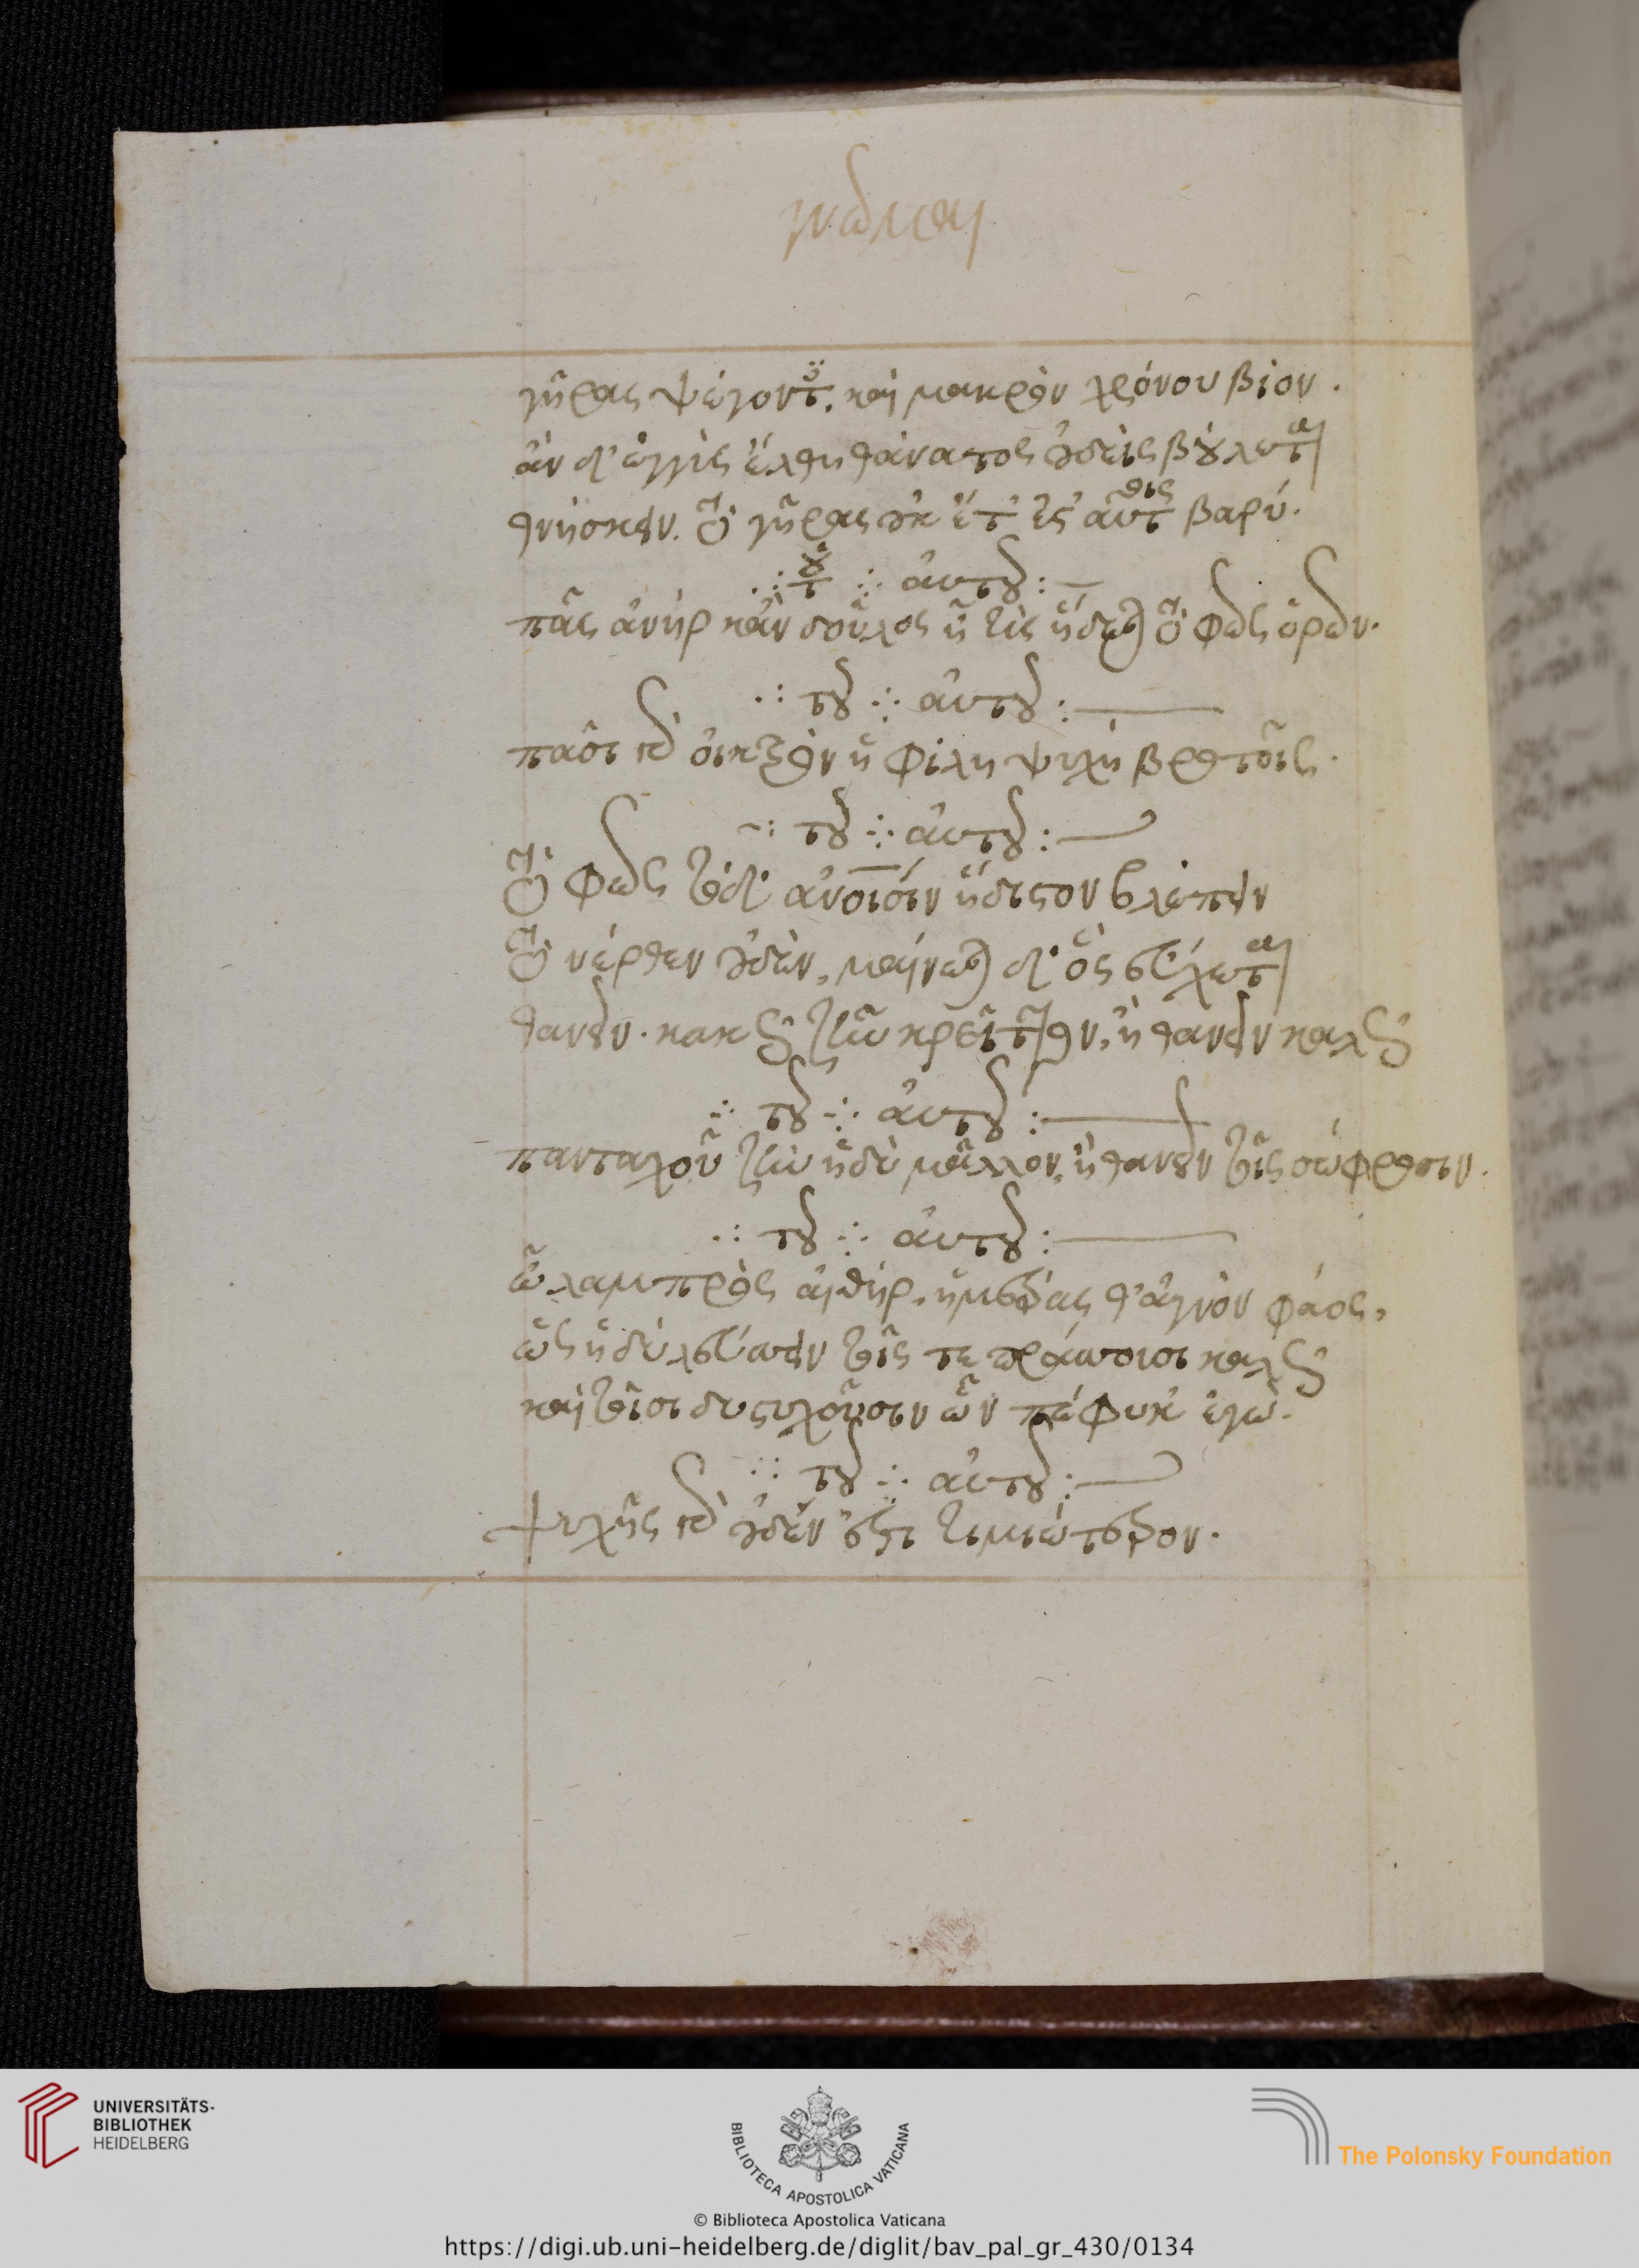 γνῶμαι
γῆρας ψέγοντες καὶ μακρὸν χρόνου βίον.
ἂν δ' ἐγγὺς ἔλθη θάνατος οὐδεὶς βούλεται
θνήσκειν. τὸ γῆρας οὐκ ἔτ' ἔστ' αὐτοῖς βαρύ.
τοῦ αὐτοῦ:
πᾶς ἀνὴρ κἂν δοῦλος ᾖ τις ἥδεται τὸ φῶς ὁρῶν.
τοῦ αὐτοῦ:
πᾶσι δ' οἰκτρὸν ἡ φίλη ψυχὴ βροτοῖς.
τοῦ αὐτοῦ:
τὸ φῶς τόδ' ἀνοισιν ἥδιστον βλέπειν
τὸ νέρθεν οὐδέν, μαίνεται δ' ὃς εὔχεται
θανεῖν. κακῶς ζῆν κρεῖττον, ἢ θανεῖν καλῶς
τοῦ αὐτοῦ:
πανταχοῦ ζῆν ἡδὺ μᾶλλον, ἢ θανεῖν τοῖς σώφροσιν.
τοῦ αὐτοῦ:
ὦ λαμπρὸς αἰθήρ, ἡμέρας θ' ἁγνὸν φάος,
ὡς ἡδὺ λεύσσειν τοῖς τε πράσσουσι καλῶς
καὶ τοῖσι δυστυχοῦσιν ὧν πέφυκ' ἐγώ.
τοῦ αὐτοῦ:
ψυχῆς δ' οὐδέν ἐστι τιμιώτερον.
UNIVERSITÄTS-
BIBLIOTHEK
HEIDELBERG
BIBLIOTECA APOSTOLICA VATICANA
The Polonsky Foundation
© Biblioteca Apostolica Vaticana
https://digi.ub.uni-heidelberg.de/diglit/bav_pal_gr_430/0134